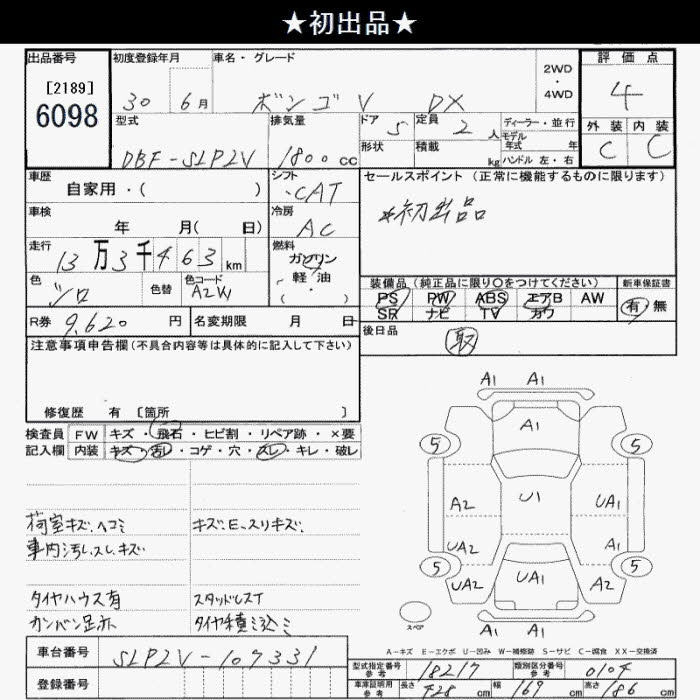 ★初出品★
出品番号
[2189]
6098
初度登録年月
30 6月
車名・グレード
ボンゴV DX
2WD
・
4WD
評価点
4
外装 内装
C C
型式
DBF-SLP2V
排気量
1800 cc
ドア 5
形状
定員 2 人
積載 kg
ディーラー・並行
モデル
年式 年
ハンドル 左・右
車歴
自家用・( )
シフト
CAT
セールスポイント(正常に機能するものに限ります)
*初出品
車検
年 月( 日)
冷房
AC
走行
13万3千463km
燃料
ガソリン
・軽油・
( )
色
シロ
色替
色コード
A2W
装備品(純正品に限り〇をつけてください)
PS PW ABS エアB AW
SR ナビ TV カワ
新車保証書
有 無
R券 9,620 円
名変期限 月 日
後日品
取
注意事項申告欄(不具合内容等は具体的に記入して下さい)
修復歴 有 [箇所 ]
検査員
記入欄
FW キズ・飛石・ヒビ割・リペア跡・×要
内装 キズ・汚レ・コゲ・穴・スレ・キレ・破レ
荷室キズ.ヘコミ
キズ.E.スリキズ.
車内汚レ.スレ.キズ
タイヤハウス有
スタッドレスT
カンバン足亦
タイヤ積ミ込ミ
A1 A1
A1
5 5
A2 U1 UA1
UA2 A1
5 5
UA2 UA1 A2
A1 A1
スペア
A-キズ E-エクボ U-凹み W-補修跡 S-サビ C-腐食 XX-交換済
車台番号
SLP2V-107331
登録番号
型式指定番号
参考
18217
類別区分番号
参考
0104
車庫証明用
参考
長さ 428 cm
幅 169 cm
高さ 186 cm